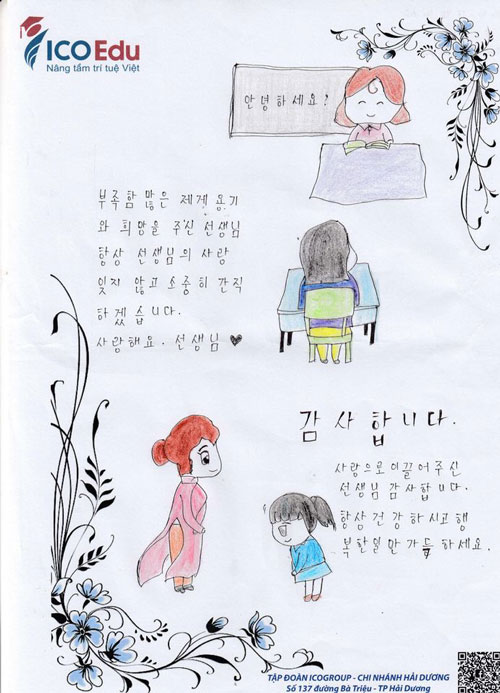 ICO Edu
Nâng tầm trí tuệ Việt
안녕하세요!
부족함 많은 제게 용기
와 희망을 주신 선생님
항상 선생님의 사랑
잊지 않고 소중히 간직
하겠습니다.
사랑해요. 선생님 ♥
감사합니다.
사랑으로 이끌어 주신
선생님 감사합니다.
항상 건강하시고 행
복한 일만 가득하세요.
TẬP ĐOÀN ICOGROUP - CHI NHÁNH HẢI DƯƠNG
Số 137 đường Bà Triệu - TP Hải Dương